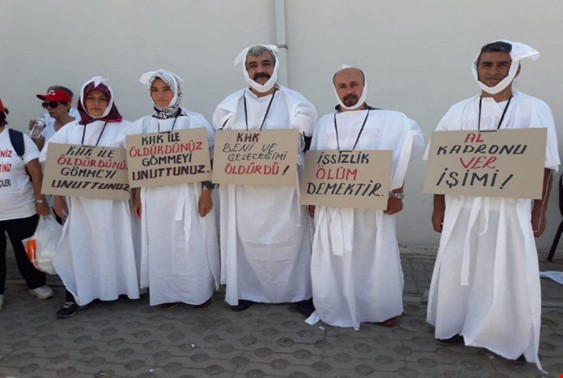 KHK İLE
ÖLDÜRDÜNÜZ
GÖMMEYİ
UNUTTUNUZ.
KHK İLE
ÖLDÜRDÜNÜZ
GÖMMEYİ
UNUTTUNUZ.
KHK
BENİ VE
GELECEĞİMİ
ÖLDÜRDÜ !
İŞSİZLİK
ÖLÜM
DEMEKTİR.
AL
KADRONU
VER
İŞİMİ !